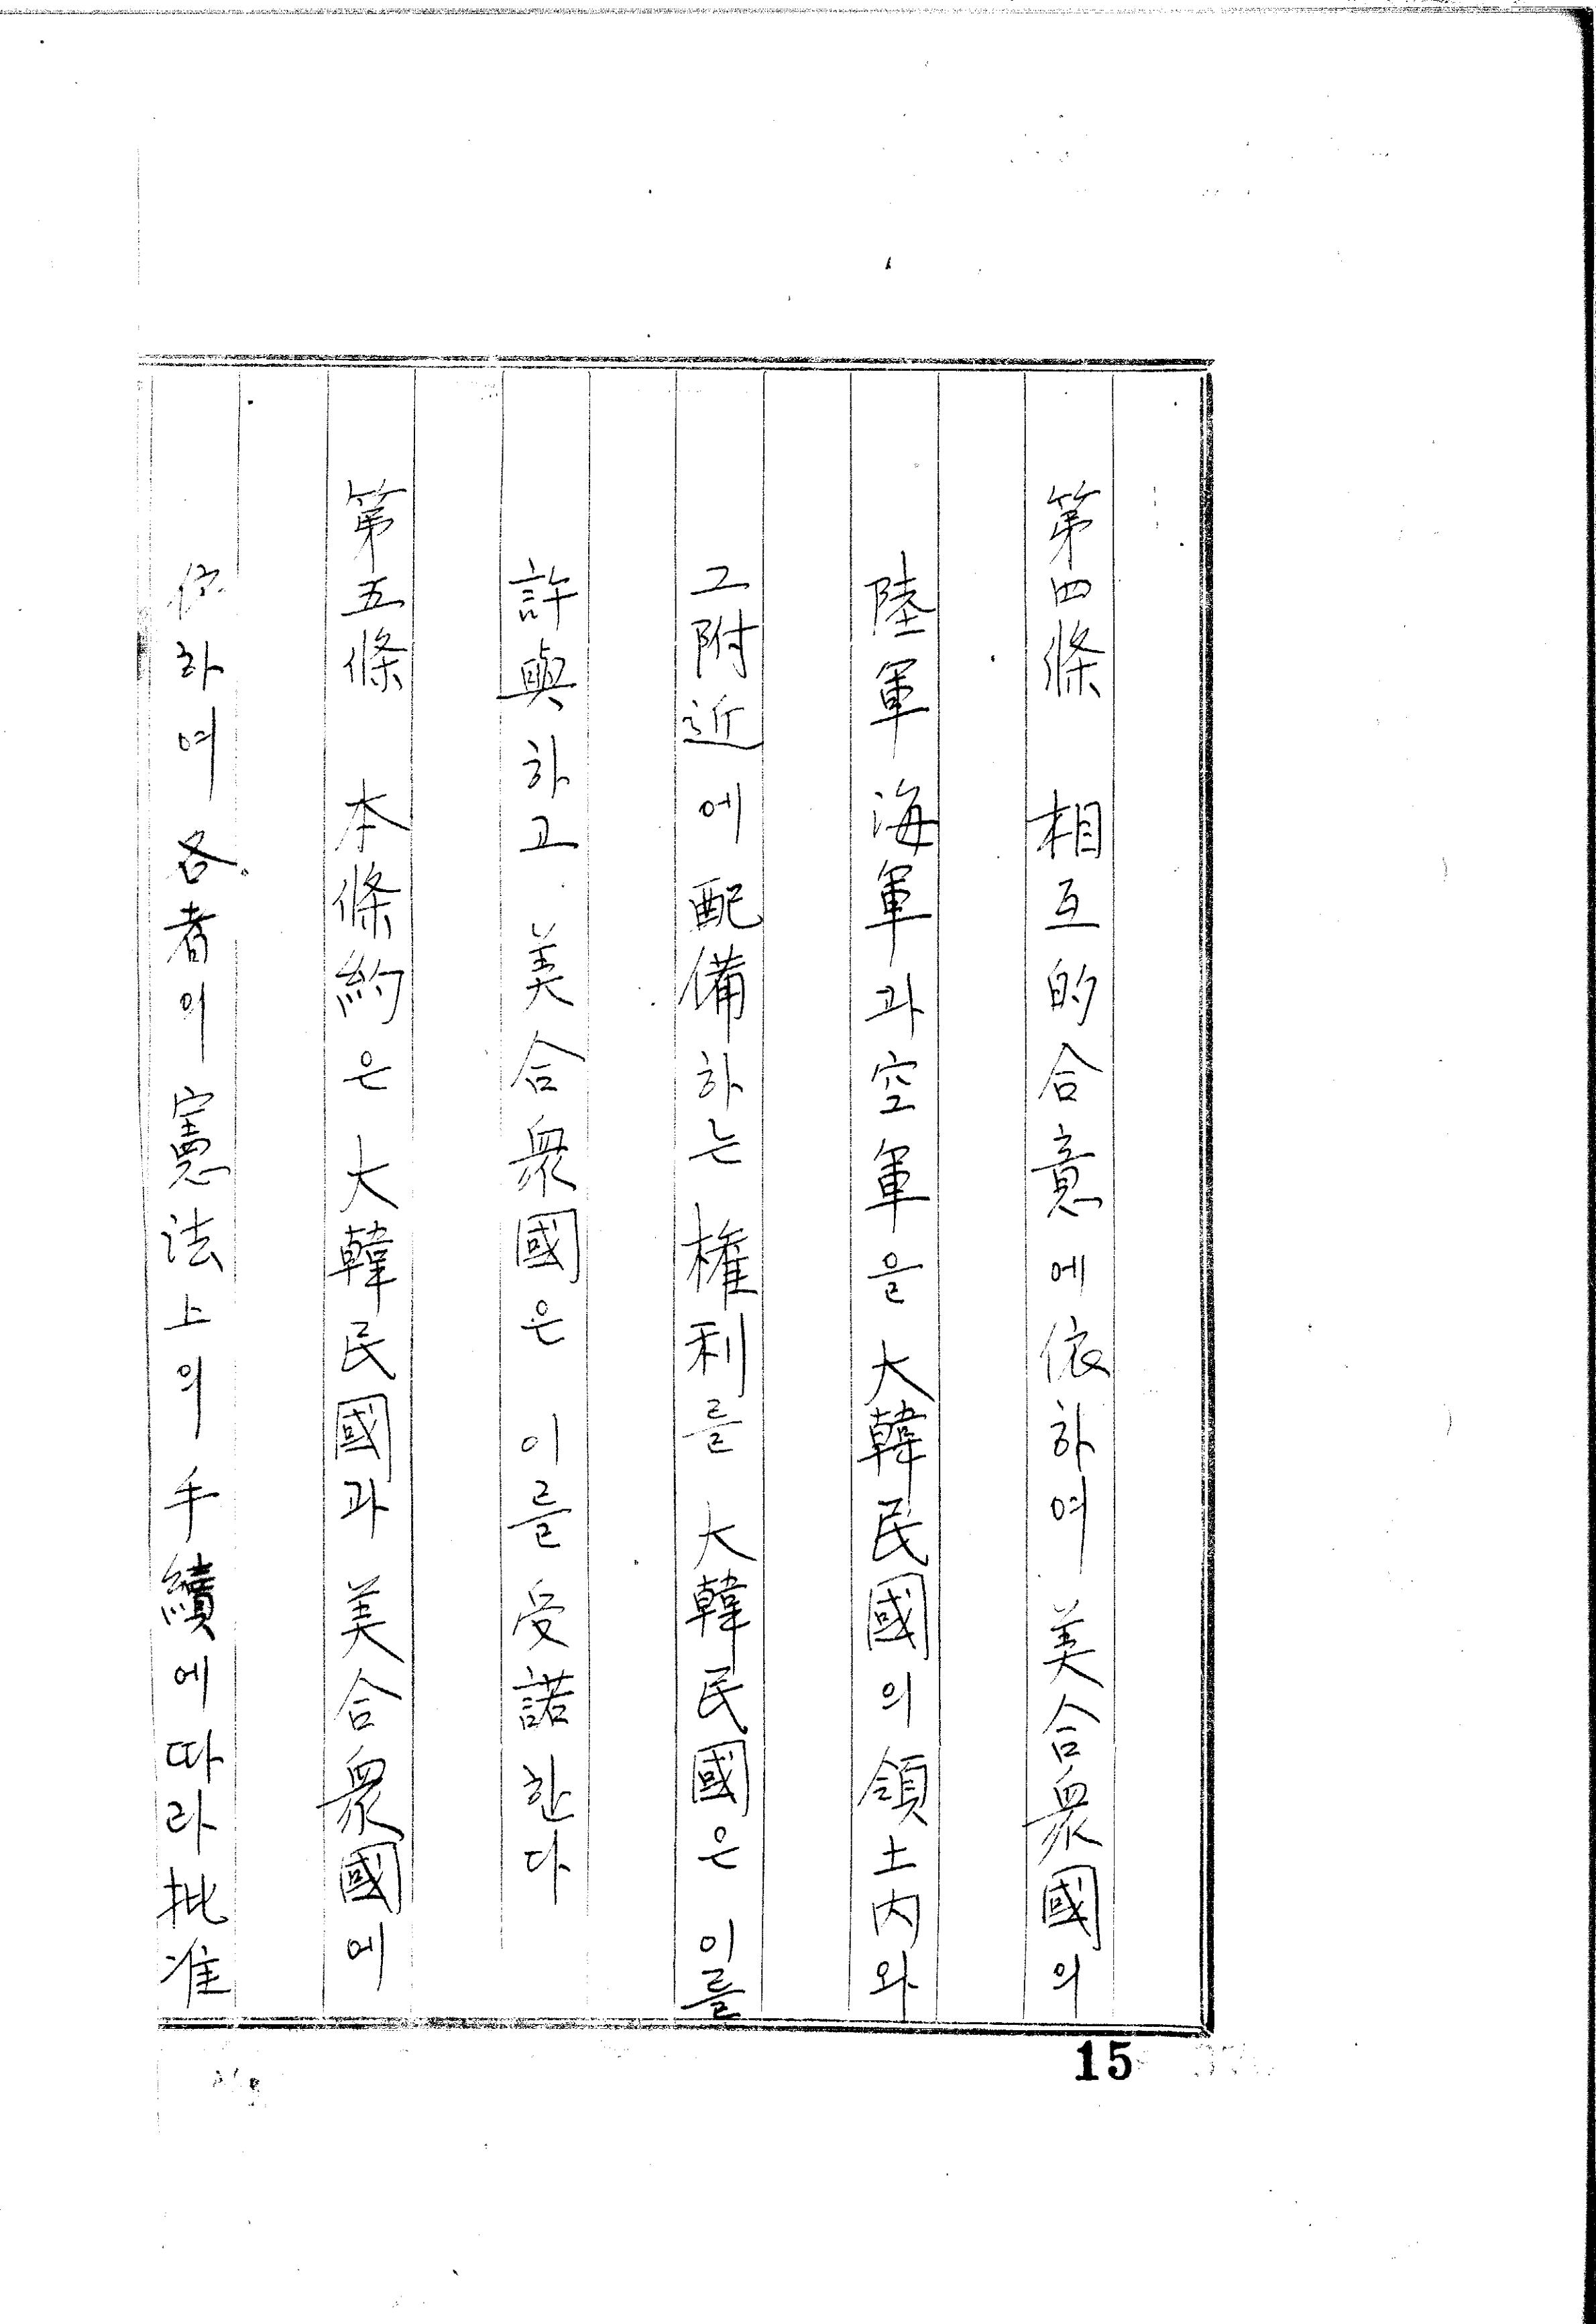 第四條 相互的合意에依하여 美合衆國의
陸軍 海軍과空軍을 大韓民國의 領土内와
그附近에 配備하는 權利를 大韓民國은 이를
許與하고 美合衆國은 이를 受諾한다
第五條 本條約은 大韓民國과 美合衆國에
依하여 各者의 憲法上의 手續에따라批准
15